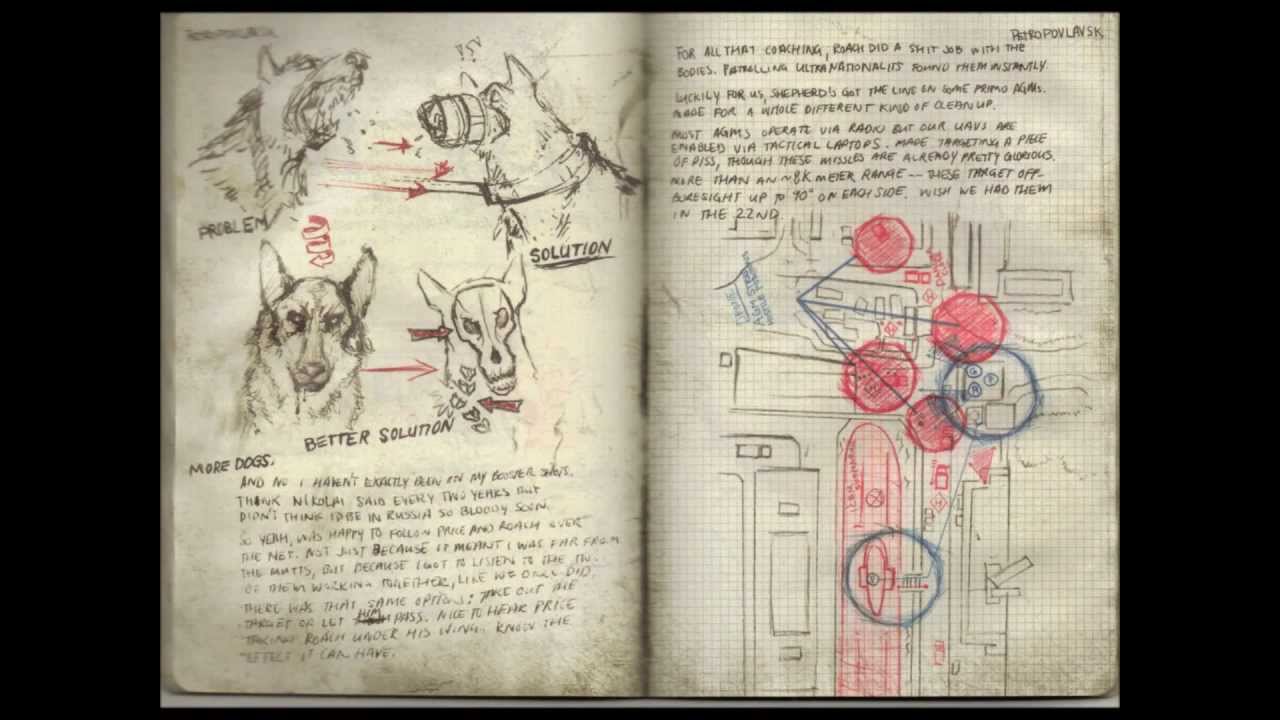 PETROPOVLAVSK
PROBLEM
SOLUTION
BETTER SOLUTION
MORE DOGS.
AND NO I HAVEN'T EXACTLY BEEN ON MY BOOSTER SHOTS.
THANK NIKOLAI SAID EVERY TWO YEARS BUT
DIDN'T THINK I'D BE IN RUSSIA SO BLOODY SOON.
SO YEAH, WAS HAPPY TO FOLLOW PRICE AND ROACH OVER
THE NET. NOT JUST BECAUSE IT MEANT I WAS FAR FROM
THE MUTTS, BUT BECAUSE I GOT TO LISTEN TO THE TWO
OF THEM WORKING TOGETHER, LIKE WE ONCE DID.
THERE WAS THAT SAME OPTIONS: TAKE OUT THE
TARGET OR LET HIM PASS. NICE TO HEAR PRICE
TAKING ROACH UNDER HIS WING. KNOW THE
EFFECT IT CAN HAVE.
PETROPOVLAVSK
FOR ALL THAT COACHING, ROACH DID A SHIT JOB WITH THE
BODIES. PATROLLING ULTRANATIONALITS FOUND THEM INSTANTLY.
LUCKILY FOR US, SHEPHERD'S GOT THE LINE ON SOME PRIMO AGMS.
MADE FOR A WHOLE DIFFERENT KIND OF CLEANUP.
MOST AGMS OPERATE VIA RADIO BUT OUR UAVS ARE
ENABLED VIA TACTICAL LAPTOPS. MADE TARGETING A PIECE
OF PISS, THOUGH THESE MISSLES ARE ALREADY PRETTY GLORIOUS.
MORE THAN AN ~8K METER RANGE -- THESE TARGET OFF-
BORESIGHT UP TO 90° ON EACH SIDE. WISH WE HAD THEM
IN THE 22ND.